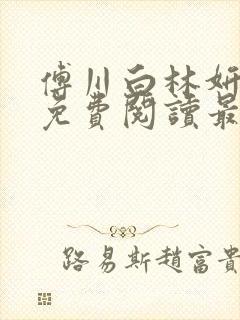 傅川白林妍
免費閱讀最
路易斯趙富貴